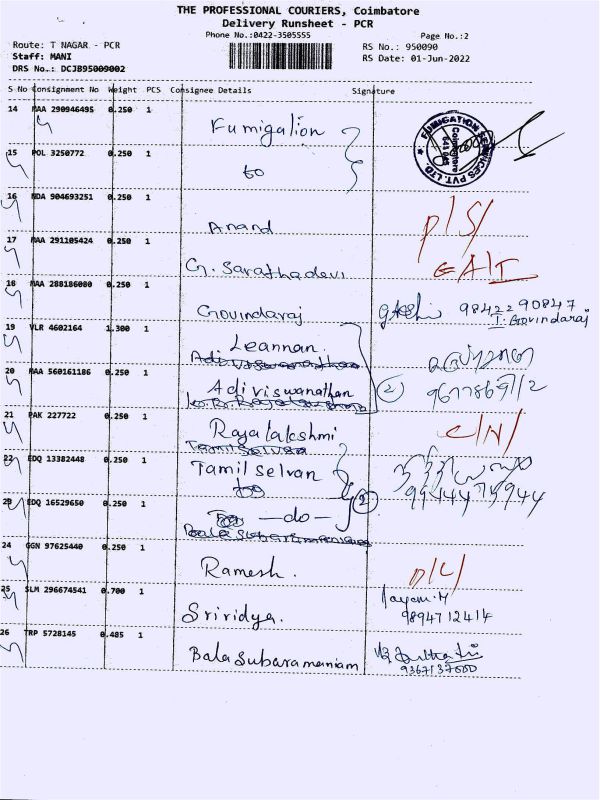 THE PROFESSIONAL COURIERS, Coimbatore
Delivery Runsheet - PCR
Phone No.:0422-3505555
Page No.:2
Route: T NAGAR - PCR
RS No.: 950090
Staff: MANI
RS Date: 01-Jun-2022
DRS No.: DCJB95009002
S No Consignment No Weight PCS Consignee Details Signature
14 MAA 290946495 0.250 1 Fumigation
FUMIGATION SERVICES PVT. LTD. Coimbatore
15 POL 3250772 0.250 1 to
16 NDA 904693251 0.250 1 Anand D/S/
17 MAA 291105424 0.250 1 G. Sarathadevi
18 MAA 288186080 0.250 1 Govindaraj 98422 90847
T. Govindaraj
19 VLR 4602164 1.300 1 Leannan.
20 MAA 560161186 0.250 1 Adi viswanathan (2)
21 PAK 227722 0.250 1 Rajalakshmi C/N/
22 EDQ 13382448 0.250 1 Tamil Selvan
23 EDQ 16529650 0.250 1 -do- (2)
24 GGN 97625440 0.250 1 Ramesh. D/L/
25 SLM 296674541 0.700 1 Srividya. Jayam.M
9894712414
26 TRP 5728145 0.485 1 Bala Subaramaniam